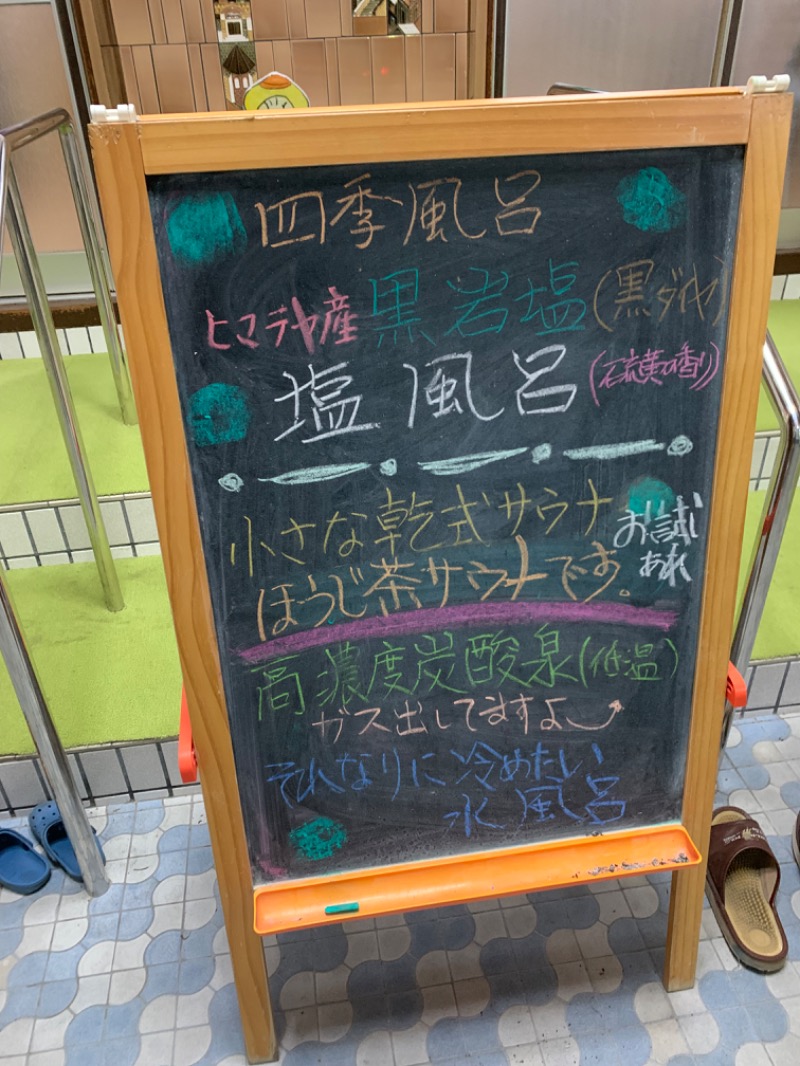 四季風呂
ヒマラヤ産 黒岩塩 (黒ダイヤ)
塩風呂 (硫黄の香り)
小さな乾式サウナ
お試しあれ
ほうじ茶サウナです。
高濃度炭酸泉(低温)
ガス出してますよ
それなりに冷めたい
水風呂